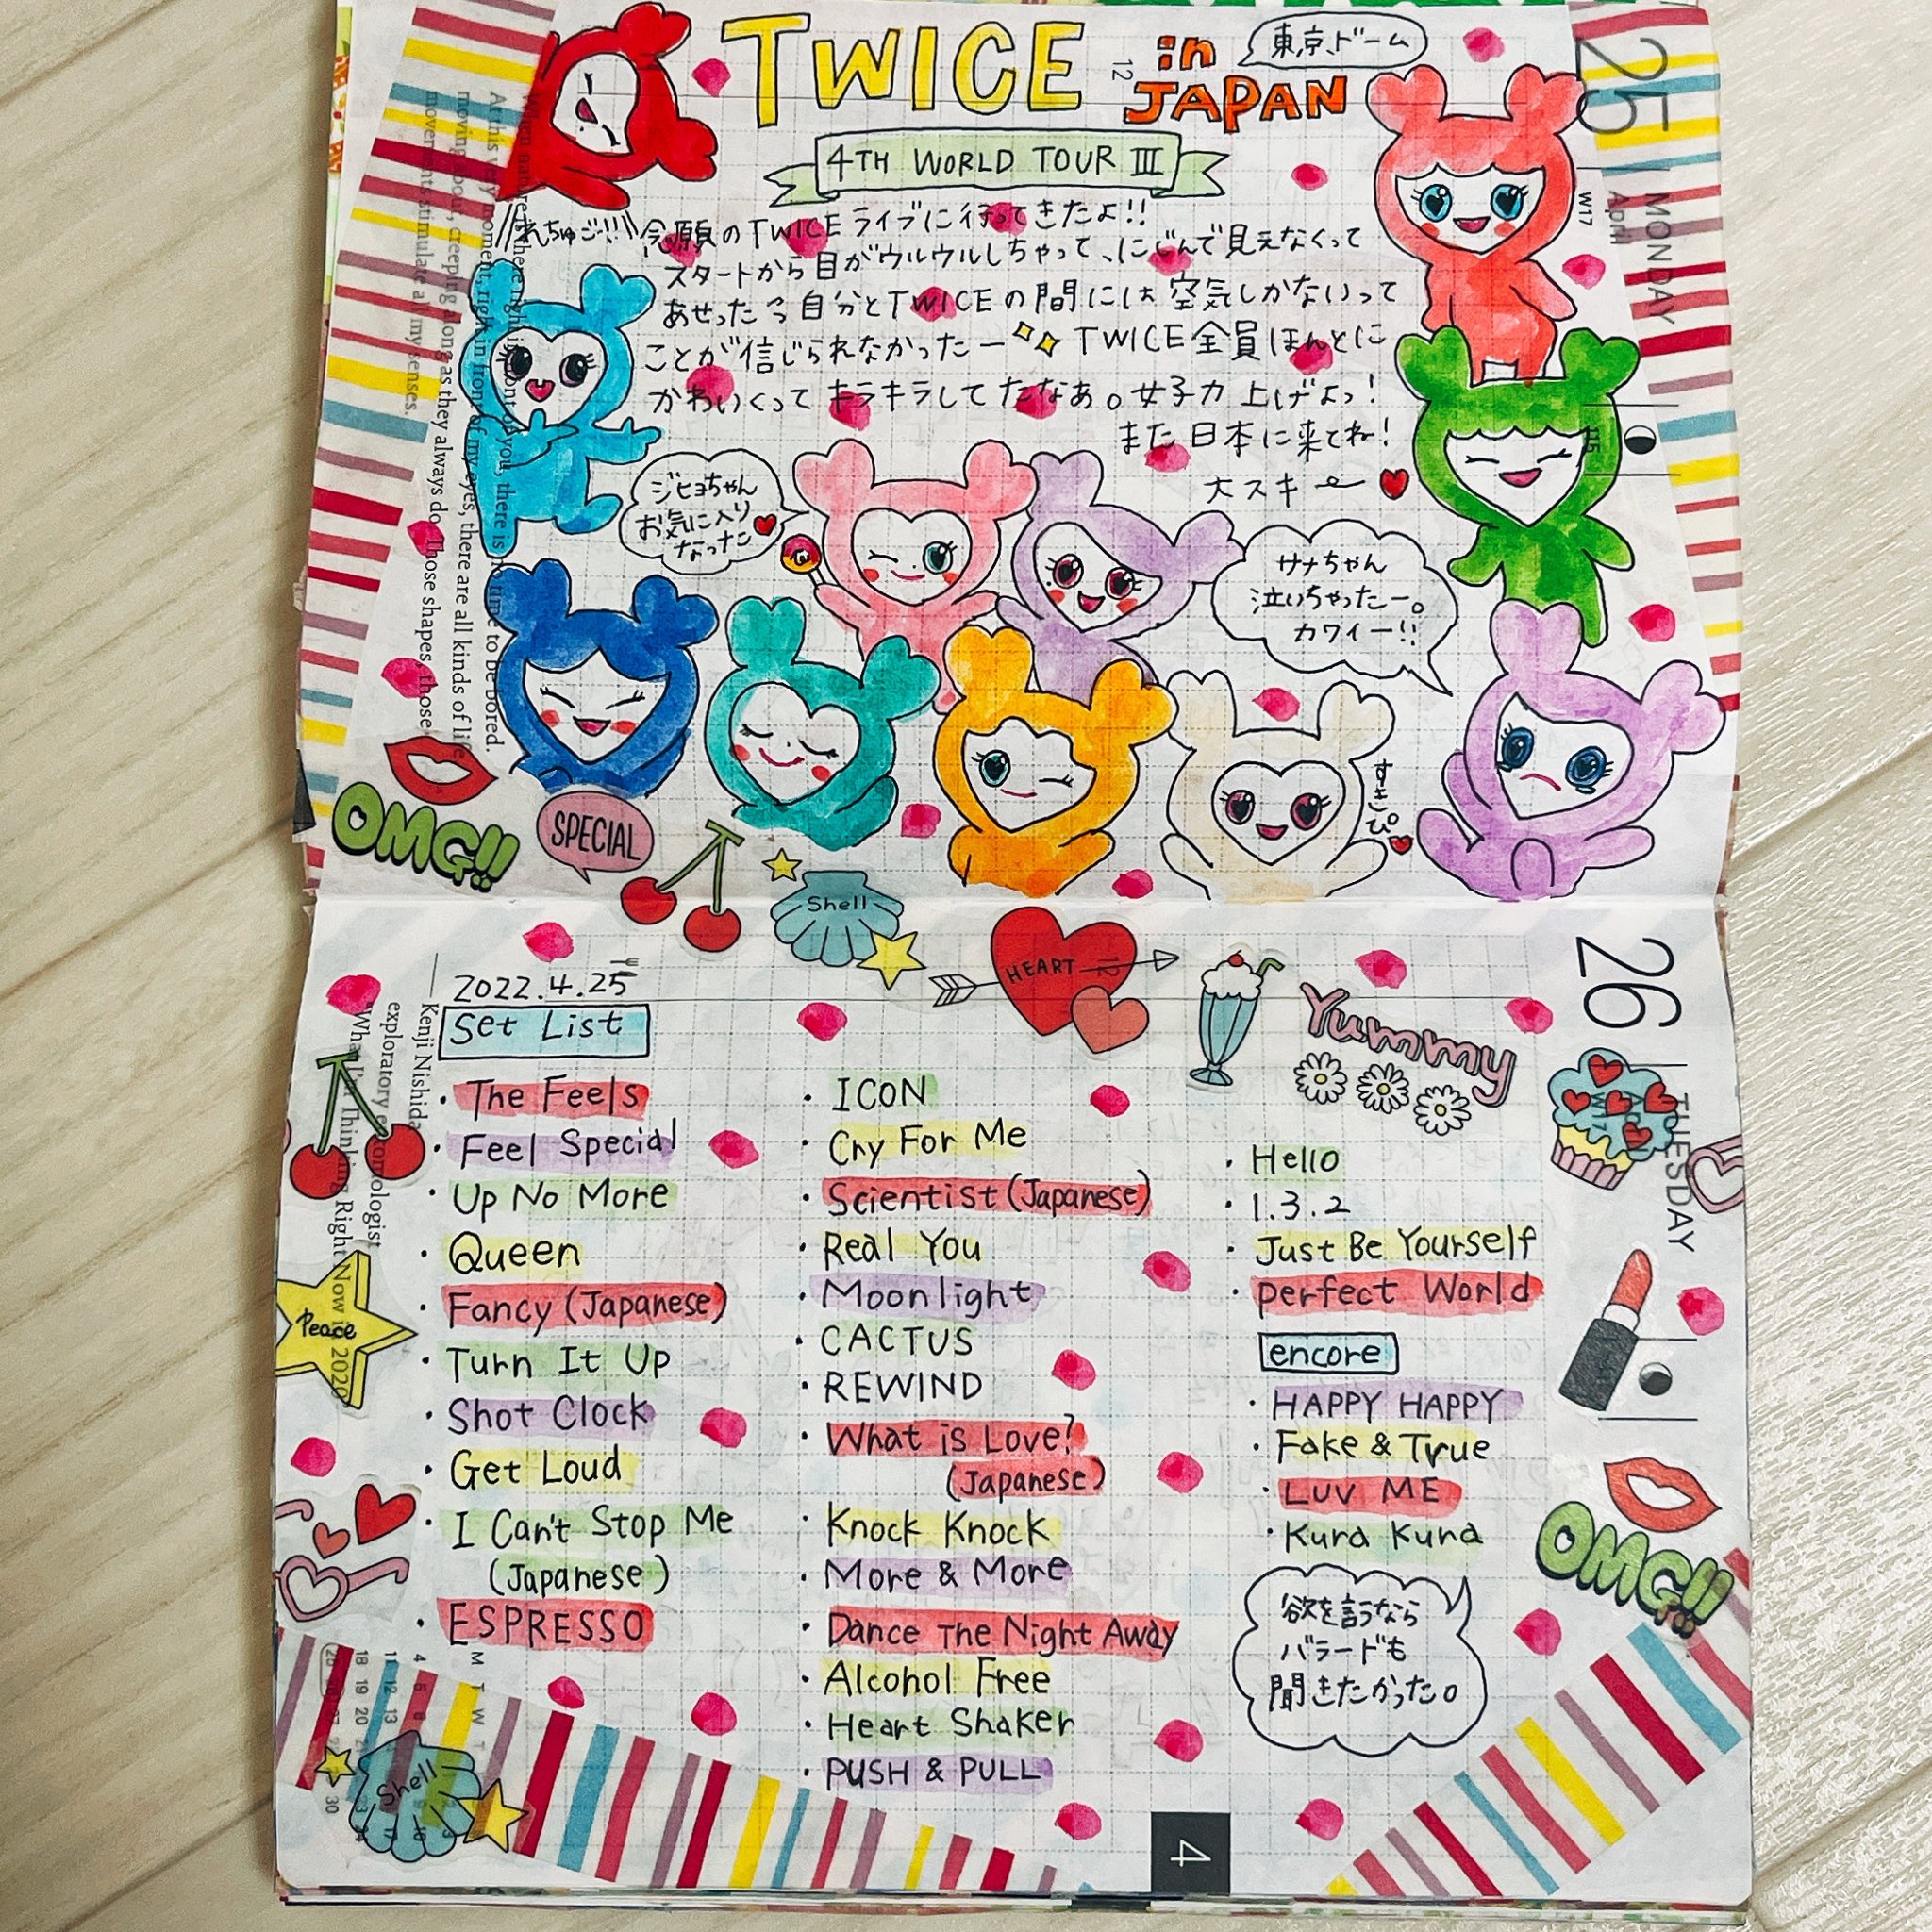 TWICE in JAPAN
東京ドーム
4TH WORLD TOUR III
れちゅご!!
念願のTWICEライブに行ってきたよ!!
スタートから目がウルウルしちゃって、にじんで見えなくって
あせった 自分とTWICEの間には空気しかないって
ことが信じられなかったー TWICE全員ほんとに
かわいくってキラキラしてたなあ。女子力上げよっ!
また日本に来てね!
大スキ
ジヒョちゃん
お気に入り
なった
サナちゃん
泣いちゃったー。
カワイー!!
すきぴ
OMG!!
SPECIAL
Shell
HEART
Yummy
25
MONDAY
April
W17
12
When
there
right
front of you, there is no time to be bored.
At this very moment, right in front of my eyes, there are all kinds of life
moving about, creeping along as they always do. Those shapes, those
movements stimulate all my senses.
26
TUESDAY
April
W17
12
Kenji Nishida
exploratory entomologist
"What I'm Thinking Right Now in 2020
2022.4.25
Set List
・The Feels
・Feel Special
・Up No More
・Queen
・Fancy (Japanese)
・Turn It Up
・Shot Clock
・Get Loud
・I Can't Stop Me
(Japanese)
・ESPRESSO
・ICON
・Cry For Me
・Scientist (Japanese)
・Real You
・Moonlight
・CACTUS
・REWIND
・What is Love?
(Japanese)
・Knock Knock
・More & More
・Dance The Night Away
・Alcohol Free
・Heart Shaker
・PUSH & PULL
・Hello
・1.3.2
・Just Be Yourself
・perfect World
encore
・HAPPY HAPPY
・Fake & True
・LUV ME
・Kura Kura
欲を言うなら
バラードも
聞きたかった。
Peace
OMG!!
Shell
M T W T
4